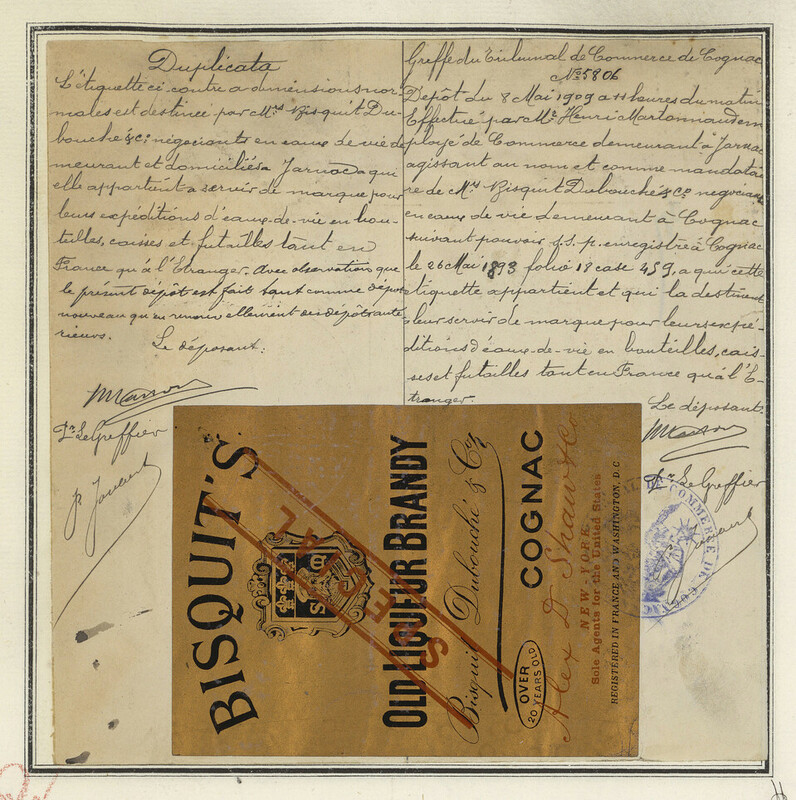 Duplicata
L'étiquette ci contre a dimensions nor-
males est destinée par Mrs Bisquit Du-
bouché & Cie négociants en eaux de vie de
meurant et domiciliés a Jarnac a qui
elle appartient a servir de marque pour
leurs expéditions d'eaux-de-vie en bou-
teilles, caisses et futailles tant en
France qu'à l'Etranger. Avec observation que
le présent dépôt est fait tant comme dépôt
nouveau qu'en renouvellement des dépôts anté
rieurs.
Le déposant:
Pr Le Greffier
Greffe du Tribunal de Commerce de Cognac
No 5806
Dépôt du 8 Mai 1909 a 11 heures du matin
Effectué par Mr Henri Martonnaud em
ployé de Commerce demeurant à Jarnac
agissant au nom et comme mandatai
re de Mrs Bisquit Dubouché & Ce negociants
en eaux de vie demeurant à Cognac
suivant pouvoir s.s.p. enregistré à Cognac
le 26 Mai 1893 folio 18 case 459, a qui cette
etiquette appartient et qui la destinent
a leur servir de marque pour leurs expé-
ditions d'eaux-de-vie en bouteilles, cais-
ses et futailles tant en France qu'à l'E-
tranger.
Le déposant.
Pr Le Greffier
BISQUIT'S
SPECIAL
OLD LIQUEUR BRANDY
Bisquit Dubouché & Co
COGNAC
OVER
20 YEARS OLD
Alex D Shaw & Co
NEW-YORK
Sole Agents for the United States
REGISTERED IN FRANCE AND WASHINGTON, D.C
COMMERCE DE COGNAC